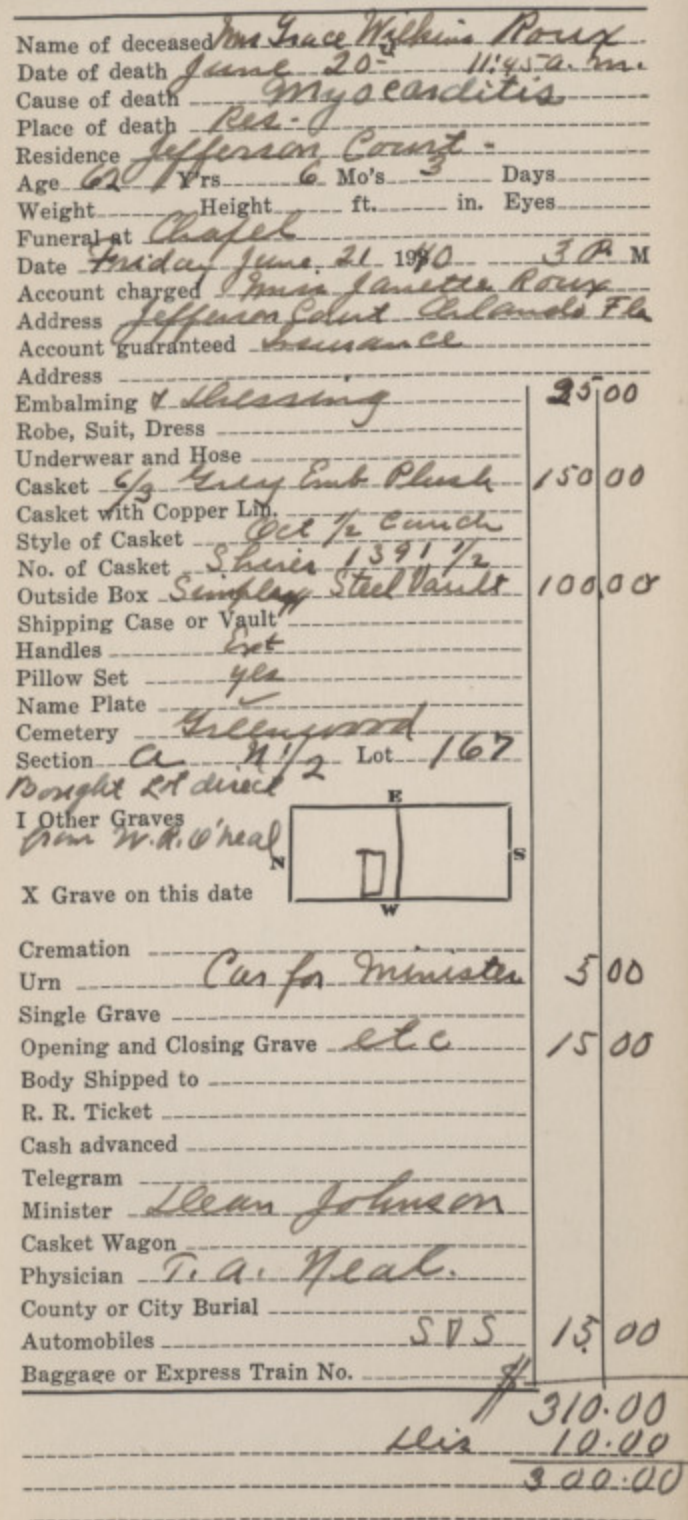 Name of deceased Mrs Grace Wilkins Roux
Date of death June 20- 11:45 a. m.
Cause of death Myocarditis
Place of death Res-
Residence Jefferson Court-
Age 62 Yrs. 6 Mo's 3 Days
Weight Height ft. in. Eyes
Funeral at Chapel
Date Friday June. 21 1940 3 P M
Account charged Miss Janette Roux
Address Jefferson Court Orlando Fla
Account guaranteed Insurance
Address
Embalming & Dressing 25 00
Robe, Suit, Dress
Underwear and Hose
Casket 6/3 Grey Emb Plush 150 00
Casket with Copper Lin.
Style of Casket Oct 1/2 Couch
No. of Casket 1391 1/2
Outside Box Simplex Steel Vault 100 00
Shipping Case or Vault
Handles Ext
Pillow Set yes
Name Plate ✓
Cemetery Greenwood
Section A N 1/2 Lot 167
Bought Lot direct
I Other Graves
from W. R. O'neal
E
N S
X Grave on this date
W
Cremation
Urn Car for Minister 5 00
Single Grave
Opening and Closing Grave etc 15 00
Body Shipped to
R. R. Ticket
Cash advanced
Telegram
Minister Dean Johnson
Casket Wagon
Physician T. A. Neal.
County or City Burial
Automobiles 15 00
Baggage or Express Train No. $
310.00
Dis 10.00
300.00